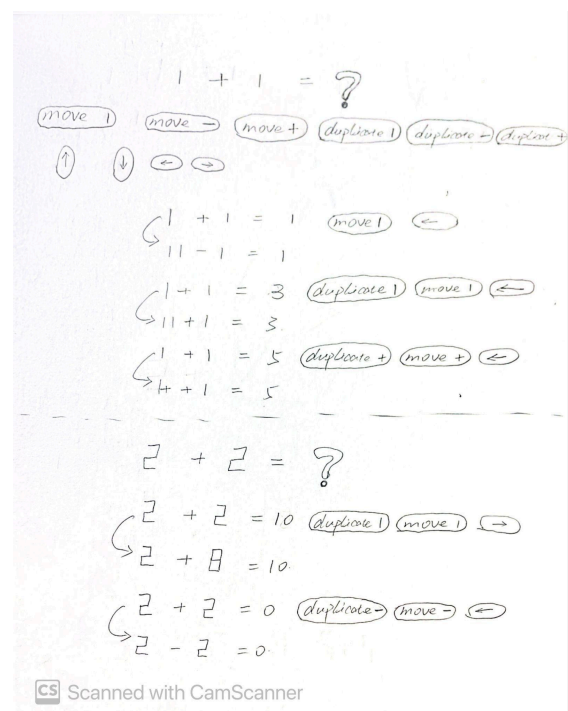 1 + 1 = ?
move 1 move - move + duplicate 1 duplicate - duplicat +
↑ ↓ ← →
1 + 1 = 1 move 1 ←
11 - 1 = 1
1 + 1 = 3 duplicate 1 move 1 ←
11 + 1 = 3
1 + 1 = 5 duplicate + move + ←
4 + 1 = 5
2 + 2 = ?
2 + 2 = 10 duplicate 1 move 1 →
2 + 8 = 10
2 + 2 = 0 duplicate - move - ←
2 - 2 = 0
CS Scanned with CamScanner